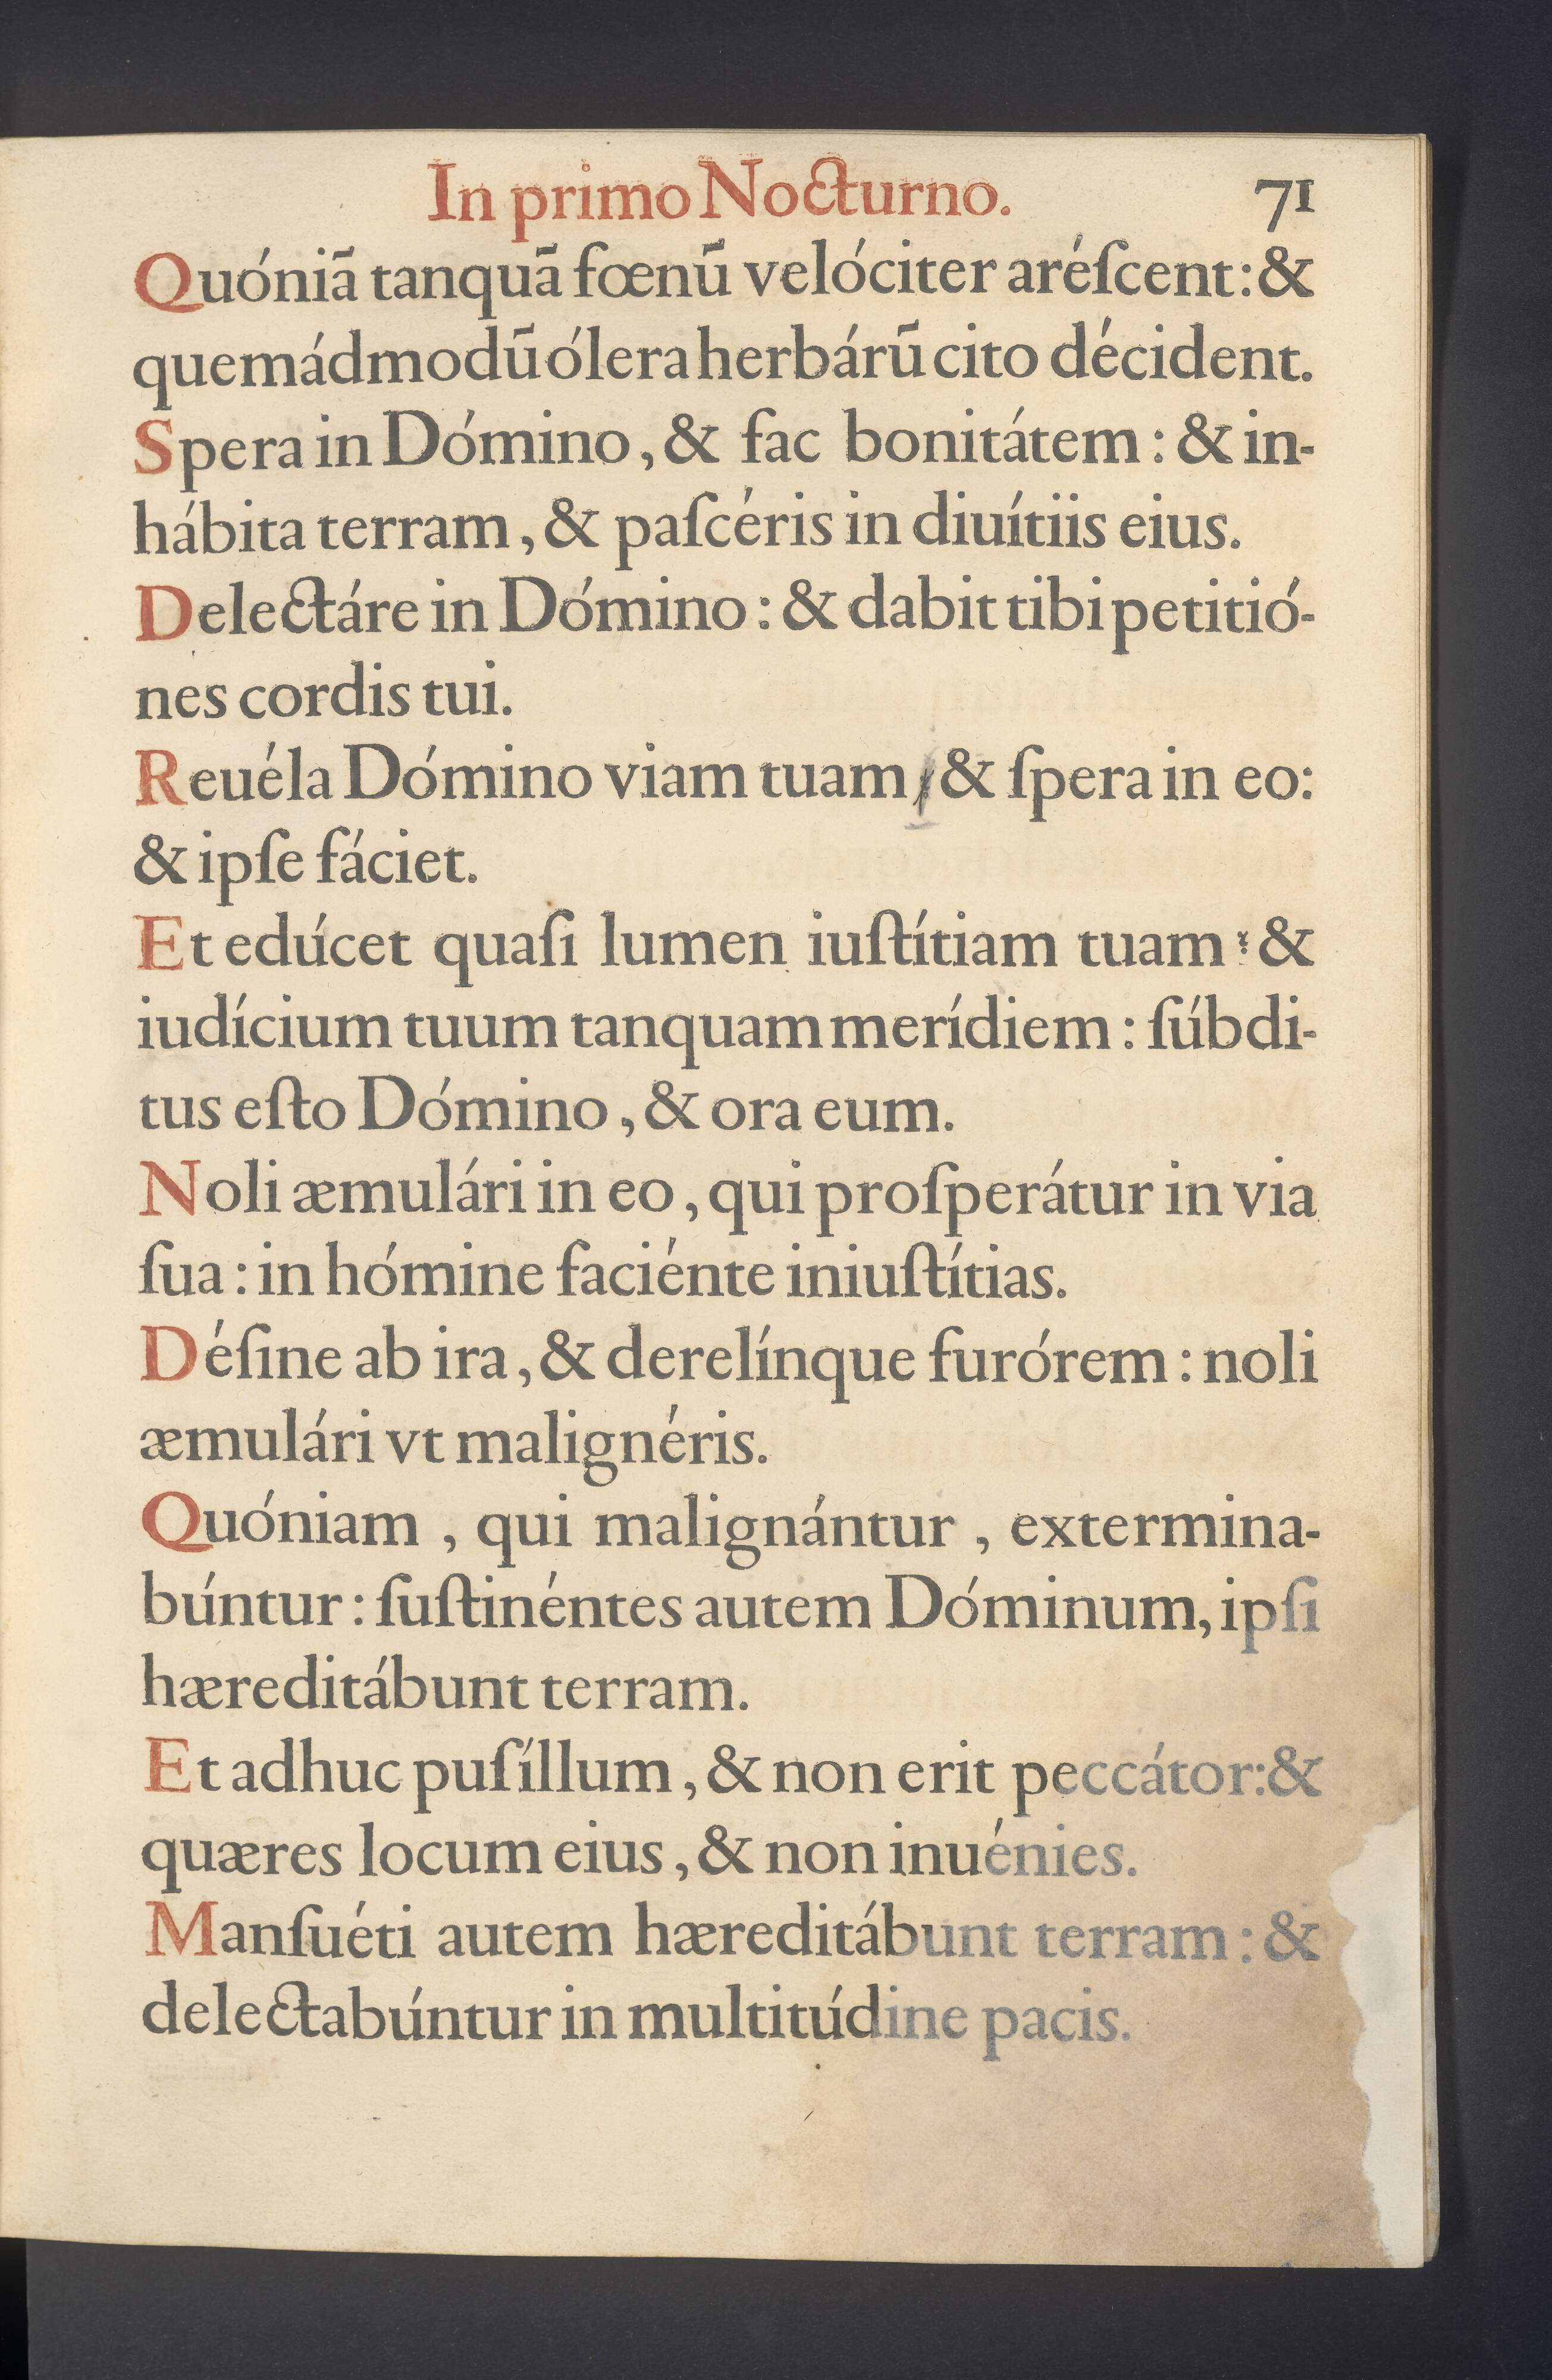 In primo Nocturno. 71
Quóniã tanquã fœnũ velóciter aréſcent: &
quemádmodũ ólera herbárũ cito décident.
Spera in Dómino, & fac bonitátem: & in-
hábita terram, & paſcéris in diuítiis eius.
Delectáre in Dómino: & dabit tibi petitió-
nes cordis tui.
Reuéla Dómino viam tuam, & ſpera in eo:
& ipſe fáciet.
Et edúcet quaſi lumen iuſtítiam tuam: &
iudícium tuum tanquam merídiem: ſúbdi-
tus eſto Dómino, & ora eum.
Noli æmulári in eo, qui proſperátur in via
ſua: in hómine faciénte iniuſtítias.
Déſine ab ira, & derelínque furórem: noli
æmulári vt malignéris.
Quóniam, qui malignántur, extermina-
búntur: ſuſtinéntes autem Dóminum, ipſi
hæreditábunt terram.
Et adhuc puſíllum, & non erit peccátor: &
quæres locum eius, & non inuénies.
Manſuéti autem hæreditábunt terram: &
delectabúntur in multitúdine pacis.